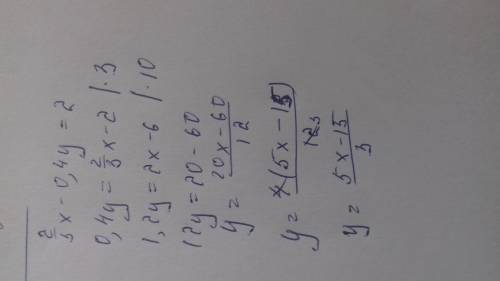 2/3 x - 0,4y = 2
0,4y = 2/3 x - 2 | · 3
1,2y = 2x - 6 | · 10
12y = 20 - 60
y = (20x - 60)/12
y = 4(5x - 15)/12 3
y = (5x - 15)/3